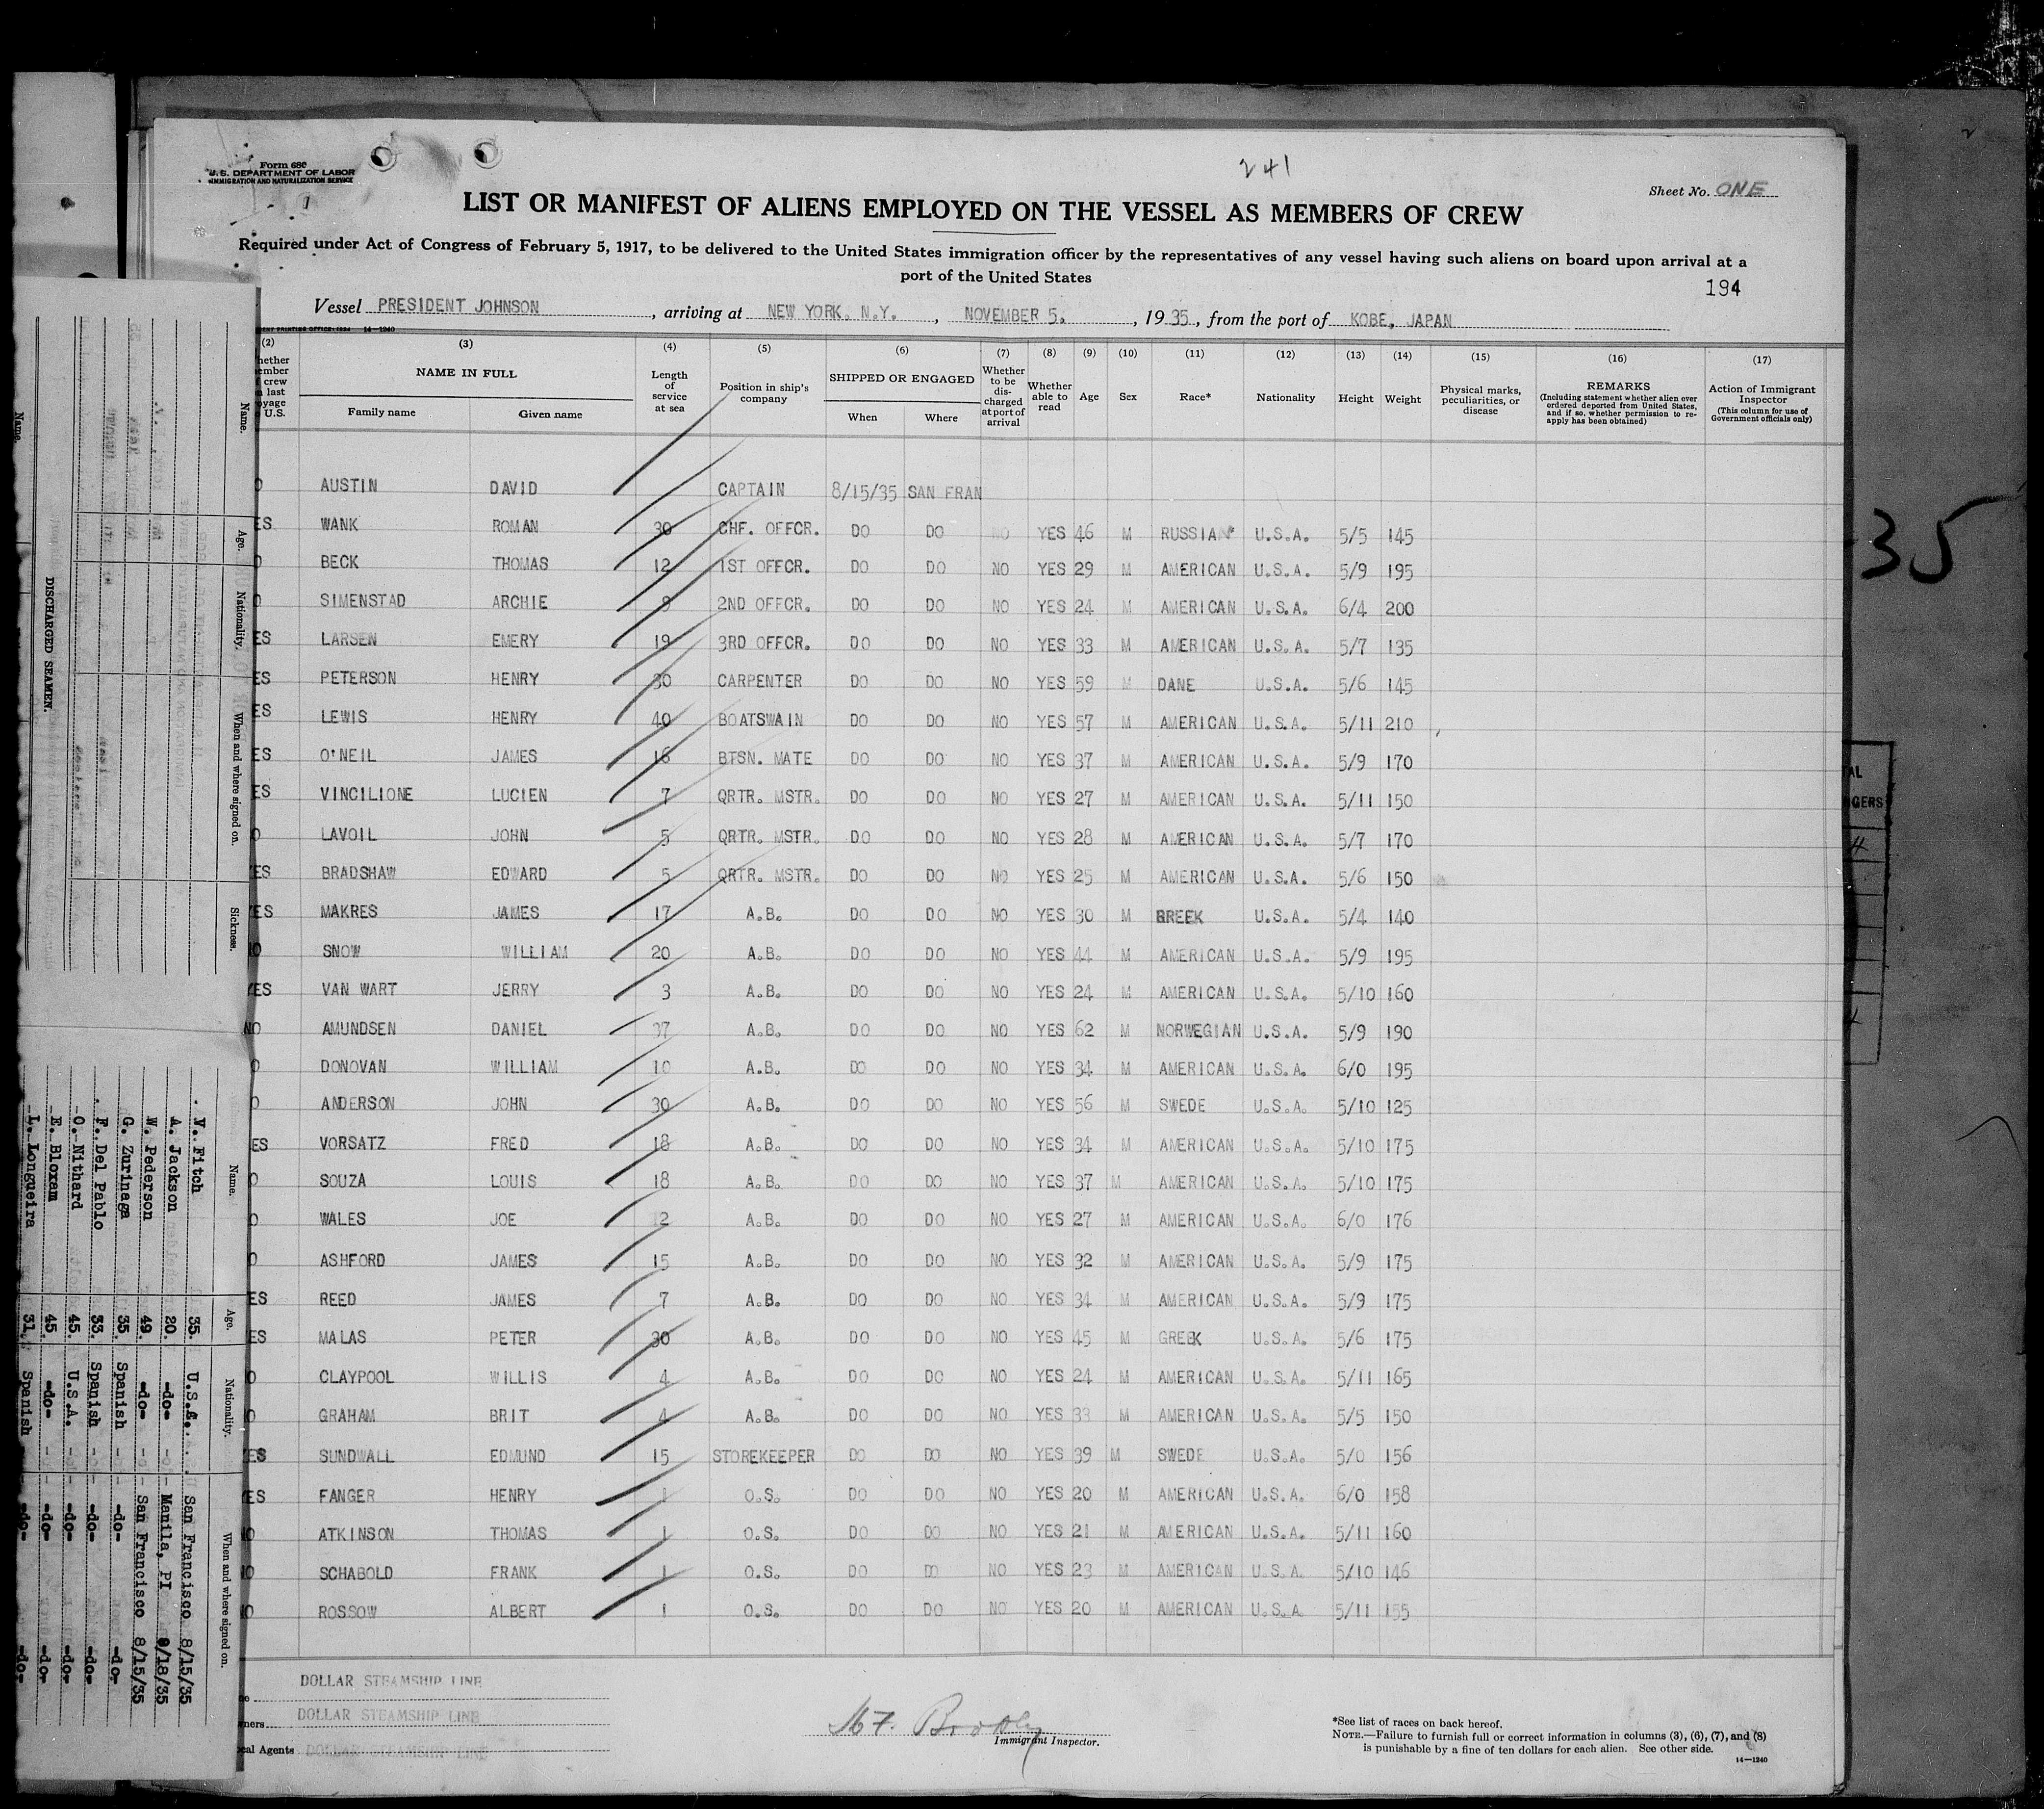 Form 680
U.S. DEPARTMENT OF LABOR
IMMIGRATION AND NATURALIZATION SERVICE
241
Sheet No. ONE
LIST OR MANIFEST OF ALIENS EMPLOYED ON THE VESSEL AS MEMBERS OF CREW
Required under Act of Congress of February 5, 1917, to be delivered to the United States immigration officer by the representatives of any vessel having such aliens on board upon arrival at a
port of the United States
194
Vessel PRESIDENT JOHNSON, arriving at NEW YORK, N.Y., NOVEMBER 5, 1935, from the port of KOBE, JAPAN
(2) (3) (4) (5) (6) (7) (8) (9) (10) (11) (12) (13) (14) (15) (16) (17)
NAME IN FULL
Family name Given name
Length of service at sea
Position in ship's company
SHIPPED OR ENGAGED
When Where
Whether to be discharged at port of arrival
Whether able to read
Age Sex Race* Nationality Height Weight
Physical marks, peculiarities, or disease
REMARKS
(Including statement whether alien ever ordered deported from United States, and if so, whether permission to reapply has been obtained)
Action of Immigrant Inspector
(This column for use of Government officials only)
AUSTIN DAVID CAPTAIN 8/15/35 SAN FRAN
ES WANK ROMAN 30 CHF. OFFCR. DO DO NO YES 46 M RUSSIAN* U.S.A. 5/5 145
BECK THOMAS 12 1ST OFFCR. DO DO NO YES 29 M AMERICAN U.S.A. 5/9 195
SIMENSTAD ARCHIE 8 2ND OFFCR. DO DO NO YES 24 M AMERICAN U.S.A. 6/4 200
ES LARSEN EMERY 19 3RD OFFCR. DO DO NO YES 33 M AMERICAN U.S.A. 5/7 135
ES PETERSON HENRY 30 CARPENTER DO DO NO YES 59 M DANE U.S.A. 5/6 145
ES LEWIS HENRY 40 BOATSWAIN DO DO NO YES 57 M AMERICAN U.S.A. 5/11 210
ES O'NEIL JAMES 16 BTSN. MATE DO DO NO YES 37 M AMERICAN U.S.A. 5/9 170
ES VINCILIONE LUCIEN 7 QRTR. MSTR. DO DO NO YES 27 M AMERICAN U.S.A. 5/11 150
O LAVOIL JOHN 5 QRTR. MSTR. DO DO NO YES 28 M AMERICAN U.S.A. 5/7 170
ES BRADSHAW EDWARD 5 QRTR. MSTR. DO DO NO YES 25 M AMERICAN U.S.A. 5/6 150
YES MAKRES JAMES 17 A.B. DO DO NO YES 30 M GREEK U.S.A. 5/4 140
NO SNOW WILLIAM 20 A.B. DO DO NO YES 44 M AMERICAN U.S.A. 5/9 195
YES VAN WART JERRY 3 A.B. DO DO NO YES 24 M AMERICAN U.S.A. 5/10 160
NO AMUNDSEN DANIEL 37 A.B. DO DO NO YES 62 M NORWEGIAN U.S.A. 5/9 190
O DONOVAN WILLIAM 10 A.B. DO DO NO YES 34 M AMERICAN U.S.A. 6/0 195
O ANDERSON JOHN 30 A.B. DO DO NO YES 56 M SWEDE U.S.A. 5/10 125
ES VORSATZ FRED 18 A.B. DO DO NO YES 34 M AMERICAN U.S.A. 5/10 175
O SOUZA LOUIS 18 A.B. DO DO NO YES 37 M AMERICAN U.S.A. 5/10 175
O WALES JOE 12 A.B. DO DO NO YES 27 M AMERICAN U.S.A. 6/0 176
O ASHFORD JAMES 15 A.B. DO DO NO YES 32 M AMERICAN U.S.A. 5/9 175
ES REED JAMES 7 A.B. DO DO NO YES 34 M AMERICAN U.S.A. 5/9 175
ES MALAS PETER 30 A.B. DO DO NO YES 45 M GREEK U.S.A. 5/6 175
O CLAYPOOL WILLIS 4 A.B. DO DO NO YES 24 M AMERICAN U.S.A. 5/11 165
O GRAHAM BRIT 4 A.B. DO DO NO YES 33 M AMERICAN U.S.A. 5/5 150
YES SUNDWALL EDMUND 15 STOREKEEPER DO DO NO YES 39 M SWEDE U.S.A. 5/0 156
YES FANGER HENRY 1 O.S. DO DO NO YES 20 M AMERICAN U.S.A. 6/0 158
NO ATKINSON THOMAS 1 O.S. DO DO NO YES 21 M AMERICAN U.S.A. 5/11 160
NO SCHABOLD FRANK 1 O.S. DO DO NO YES 23 M AMERICAN U.S.A. 5/10 146
NO ROSSOW ALBERT 1 O.S. DO DO NO YES 20 M AMERICAN U.S.A. 5/11 155
DOLLAR STEAMSHIP LINE
DOLLAR STEAMSHIP LINE
cal Agents DOLLAR STEAMSHIP LINE
Immigrant Inspector.
*See list of races on back hereof.
NOTE.—Failure to furnish full or correct information in columns (3), (6), (7), and (8)
is punishable by a fine of ten dollars for each alien. See other side.
14—1240
35
DISCHARGED SEAMEN.
Name. Age. Nationality. When and where signed on. Sickness.
Name. Age. Nationality. When and where signed on.
N. Fitch 35. U.S.A. San Francisco 8/15/35
A. Jackson 20. -do- Manila, PI 9/18/35
W. Pederson 49. -do- San Francisco 8/15/35
G. Zurinaga 35. Spanish -do- -do-
F. Del Pablo 33. Spanish -do- -do-
O. Nithard 45. U.S.A. -do- -do-
E. Bloxam 45. -do- -do- -do-
L. Longueira 31. Spanish -do- -do-